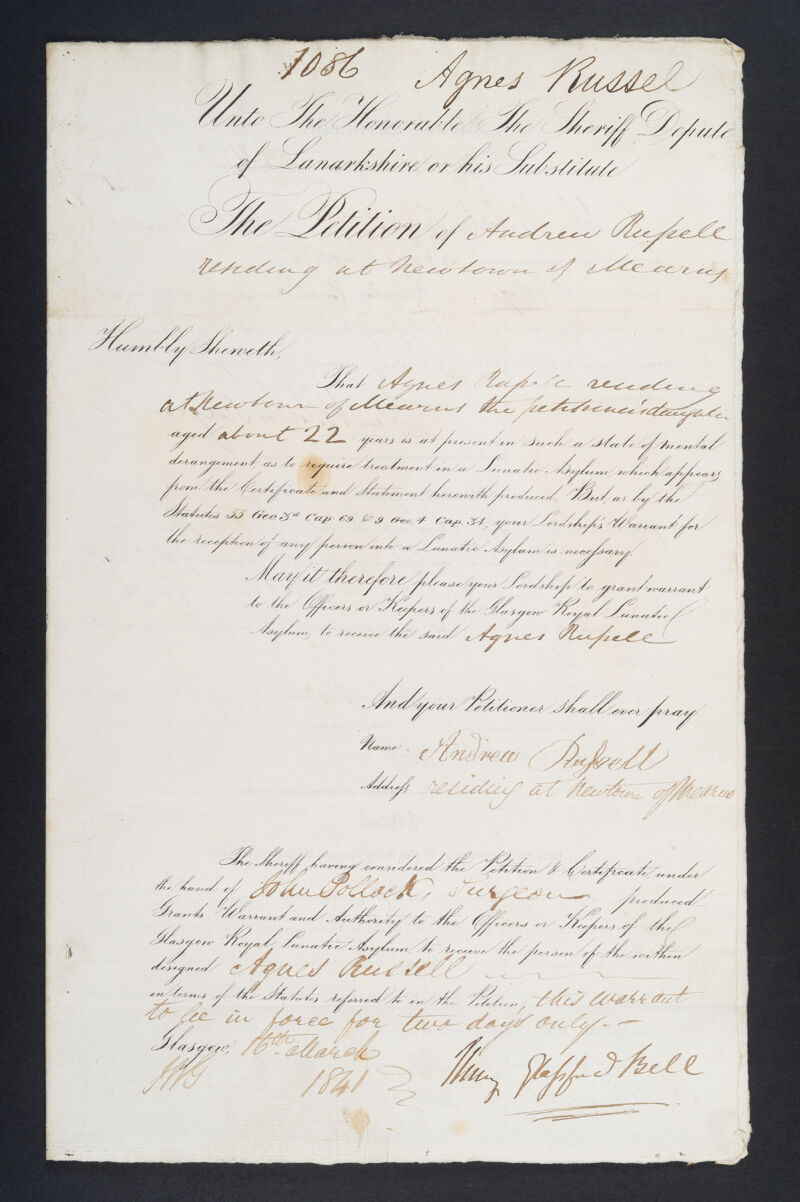 1086 Agnes Russel
Unto The Honorable The Sheriff Depute
of Lanarkshire or his Substitute
The Petition of Andrew Russell
residing at Newtown of Mearns
Humbly Sheweth,
That Agnes Russell residing
at Newtown of Mearns the petitioner's daughter
aged about 22 years is at present in such a state of mental
derangement, as to require treatment in a Lunatic Asylum, which appears
from the Certificate and Statement herewith produced, But, as by the
Statutes 55 Geo 3d Cap. 69 & 9 Geo. 4 Cap. 34, your Lordship's Warrant for
the reception of any person into a Lunatic Asylum is necessary.
May it therefore please your Lordship to grant warrant
to the Officers or Keepers of the Glasgow Royal Lunatic
Asylum, to receive the said Agnes Russell
And your Petitioner shall ever pray
Name. Andrew Russell
Address residing at Newtown of Mearns
The Sheriff having considered the Petition & Certificate under
the hand of John Pollock, Surgeon produced
Grants Warrant and Authority to the Officers or Keepers of the
Glasgow Royal Lunatic Asylum, to receive the person of the within
designed Agnes Russell
in terms of the Statutes referred to in the Petition, this warrant
to be in force for two days only.—
Glasgow, 16th March
1841 Henry Glassford Bell